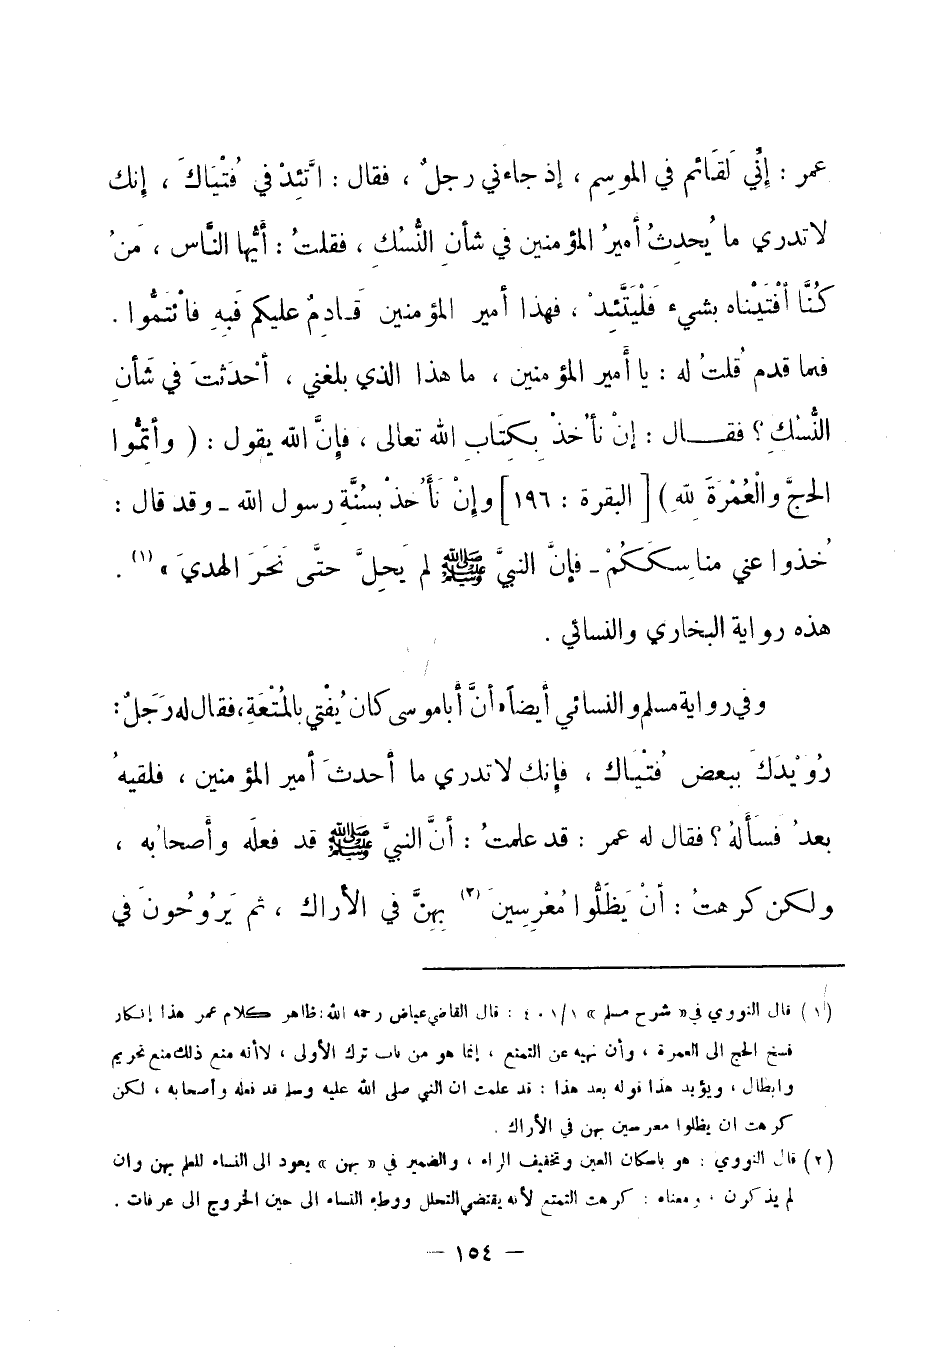 عمر : إنِّي لَقَائم في الموسِم ، إذ جاءني رجلٌ ، فقال : اتَّئِدْ في فُتْيَاكَ ، إنك
لا تدري ما يُحدِثُ أميرُ المؤمنين في شأنِ النُّسُكِ ، فقلتُ : أيُّها النَّاس ، مَن
كُنَّا أفْتَيْناه بشيء فَلْيَتَّئِدْ ، فهذا أمير المؤمنين قَـادِمٌ عليكم فَبِهِ فائْتَمُّوا .
فلما قدم قُلتُ له : يا أمير المؤمنين ، ما هذا الذي بلغني ، أحْدَثتَ في شَأنِ
النُّسُكِ ؟ فقـــال : إنْ نأخُذْ بِكِتَابِ الله تعالى ، فإنَّ الله يقول : ( وأتِمُّوا
الحجَّ والْعُمْرَةَ لله ) [ البقرة : ١٩٦ ] وإنْ نَأْخُذْ بسُنَّةِ رسول الله ـ وقد قال :
خُذوا عني مناسِكَكُمْ ـ فإنَّ النبيَّ ﷺ لم يَحِلَّ حتَّى نَحَرَ الهديَ » (١) .
هذه رواية البخاري والنسائي .
وفي رواية مسلم والنسائي أيضاً « أنَّ أبا موسى كان يُفْتي بالمُتْعَةِ ، فقال له رَجَلٌ :
رُوَيْدَكَ ببعض فُتْيَاك ، فإنك لا تدري ما أحدثَ أمير المؤمنين ، فلقيهُ
بعدُ فسَأَلهُ ؟ فقال له عمر : قد علمتُ : أنَّ النبيَّ ﷺ قد فعلَه وأصحابُه ،
ولكن كرهتُ : أنْ يَظَلُّوا مُعْرِسِينَ (٢) بِهِنَّ في الأراك ، ثم يَرُوحُونَ في
(١) قال النووي في « شرح مسلم » ٤٠١/١ : قال القاضي عياض رحمه الله : ظاهر كلام عمر هذا إنكار
فسخ الحج الى العمرة ، وأن نهيه عن التمتع ، إنما هو من باب ترك الأولى ، لا أنه منع ذلك منع تحريم
وابطال ، ويؤيد هذا قوله بعد هذا : قد علمت ان النبي صلى الله عليه وسلم قد فعله وأصحابه ، لكن
كرهت ان يظلوا معرسين بهن في الأراك .
(٢) قال النووي : هو باسكان العين وتخفيف الراء ، والضمير في « بهن » يعود الى النساء للعلم بهن وان
لم يذكرن ، ومعناه : كرهت التمتع لأنه يقتضي التحلل ووطء النساء الى حين الخروج الى عرفات .
— ١٥٤ —